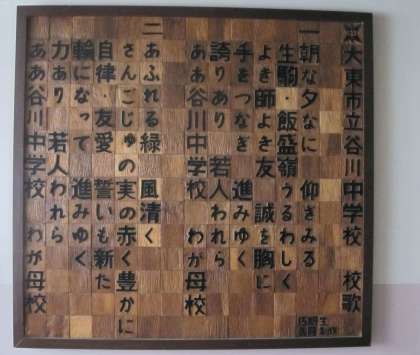 大東市立谷川中学校 校歌
一 朝な夕なに 仰ぎみる
生駒・飯盛嶺うるわしく
よき師よき友 誠を胸に
手をつなぎ 進みゆく
誇りあり 若人われら
ああ谷川中学校 わが母校
二 あふれる緑 風清く
さんごじゅの実の赤く豊かに
自律・友愛 誓いも新た
輪になって 進みゆく
力あり 若人われら
ああ谷川中学校 わが母校